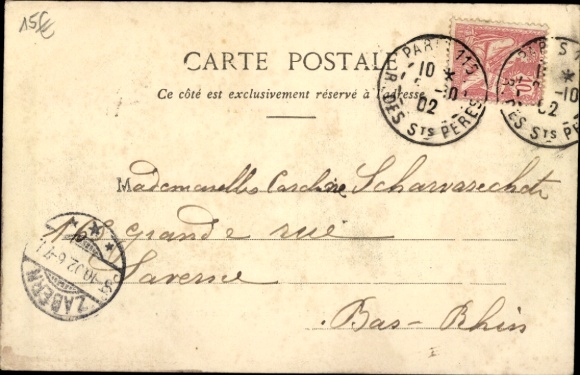 15€
CARTE POSTALE
Ce côté est exclusivement réservé à l'adresse
PARIS 113
10
02
R. DES STS PERES
PARIS 1
10
02
DES STS PE
10
Mademoiselle Caroline
16 Grande rue
Saverne
Bas-Rhin
ZABERN
10.02.6-7